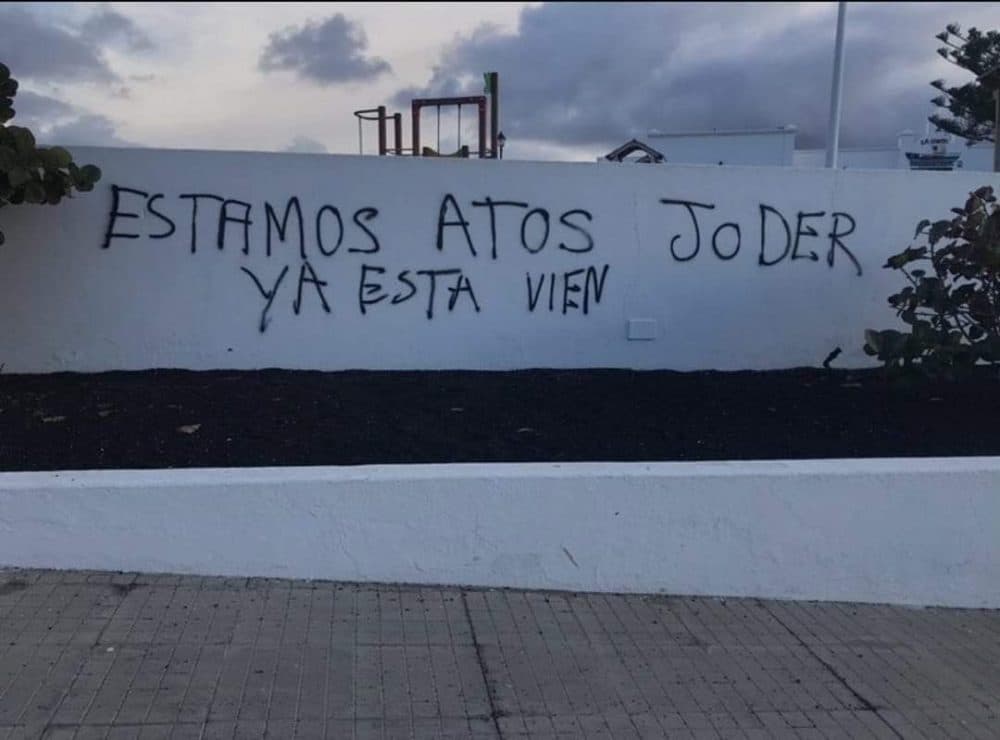 ESTAMOS ATOS JODER
YA ESTA VIEN